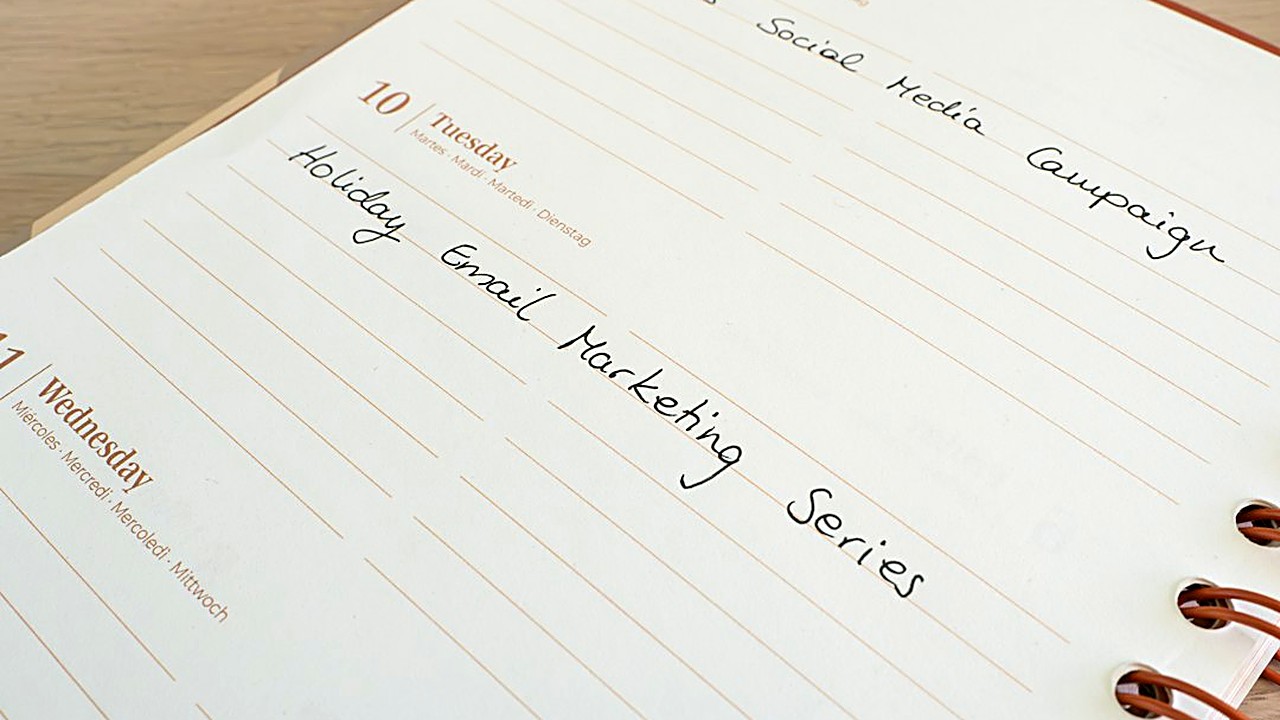 Social Media Campaign
10 Tuesday
Martes · Mardi · Martedì · Dienstag
Holiday Email Marketing Series
11 Wednesday
Miércoles · Mercredi · Mercoledì · Mittwoch